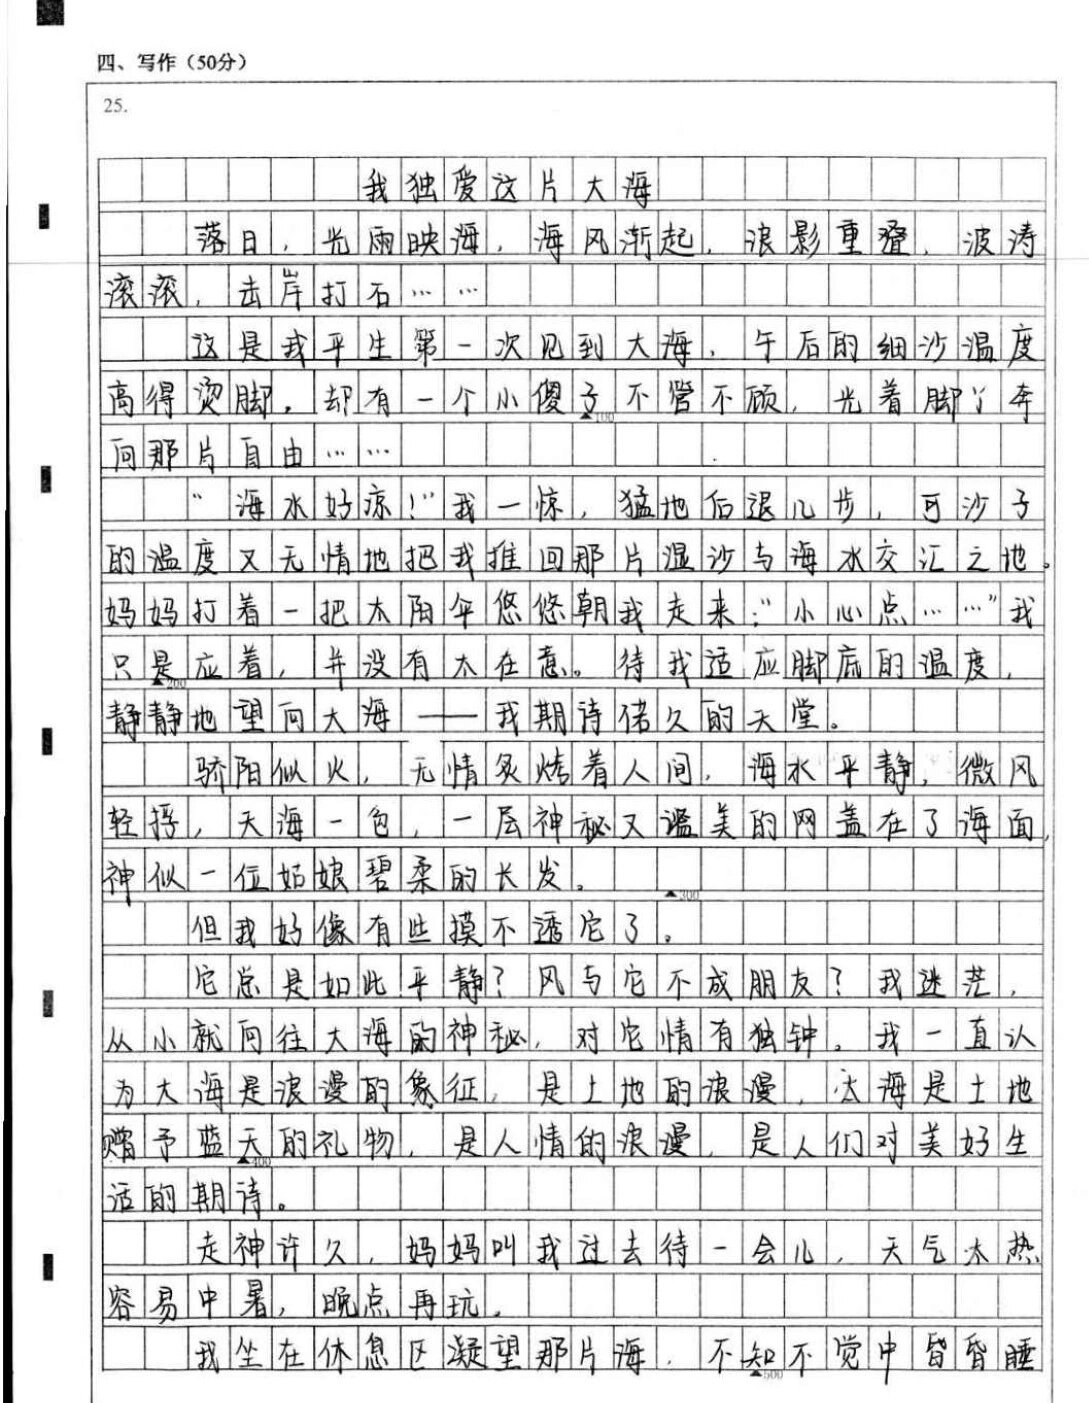 四、写作（50分）
25.
我独爱这片大海
落日，光雨映海，海风渐起，浪影重叠，波涛
滚滚，击岸打石……
这是我平生第一次见到大海，午后的细沙温度
高得烫脚，却有一个小傻子不管不顾，光着脚丫奔
▲100
向那片自由……
“海水好凉！”我一惊，猛地后退几步，可沙子
的温度又无情地把我推回那片湿沙与海水交汇之地。
妈妈打着一把太阳伞悠悠朝我走来：“小心点……”我
只是应着，并没有太在意。待我适应脚底的温度，
▲200
静静地望向大海——我期待偌久的天堂。
骄阳似火，无情炙烤着人间，海水平静，微风
轻拂，天海一色，一层神秘又谧美的网盖在了海面，
神似一位姑娘碧柔的长发。
▲300
但我好像有些摸不透它了。
它总是如此平静？风与它不成朋友？我迷茫，
从小就向往大海的神秘，对它情有独钟。我一直认
为大海是浪漫的象征，是土地的浪漫，大海是土地
赠予蓝天的礼物，是人情的浪漫，是人们对美好生
▲400
活的期待。
走神许久，妈妈叫我过去待一会儿，天气太热
容易中暑，晚点再玩。
我坐在休息区凝望那片海，不知不觉中昏昏睡
▲500